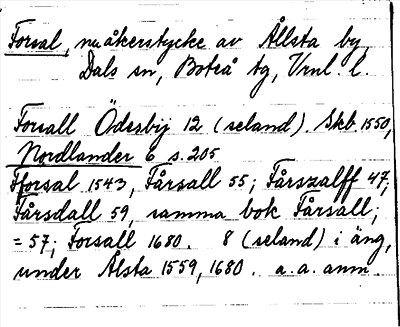 Forsal, nu åkerstycke av Ållsta by,
Dals sn, Boteå tg, Vrnl. l.
Forsall Ödesbÿ 12 (seland). Skb. 1550,
Nordlander 6 s. 205
Fforsal 1543, Fårsall 55; Fårszalff 47;
Fårsdall 59, samma bok Fårsall;
= 57; Forsall 1680. 8 (seland) i äng,
under Ålsta 1559, 1680. a. a. anm.